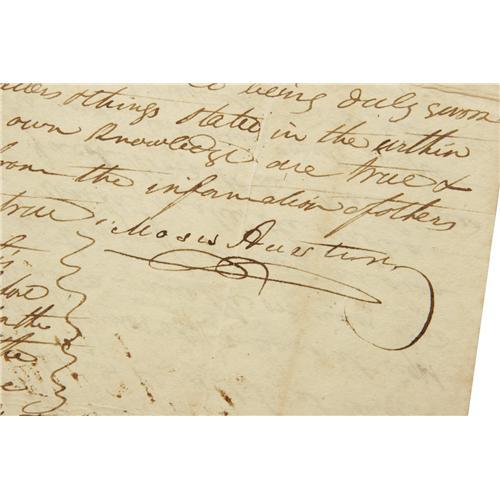 being duly sworn
things stated in the within
own knowledge are true &
from the information of others
true. Moses Austin
the
the